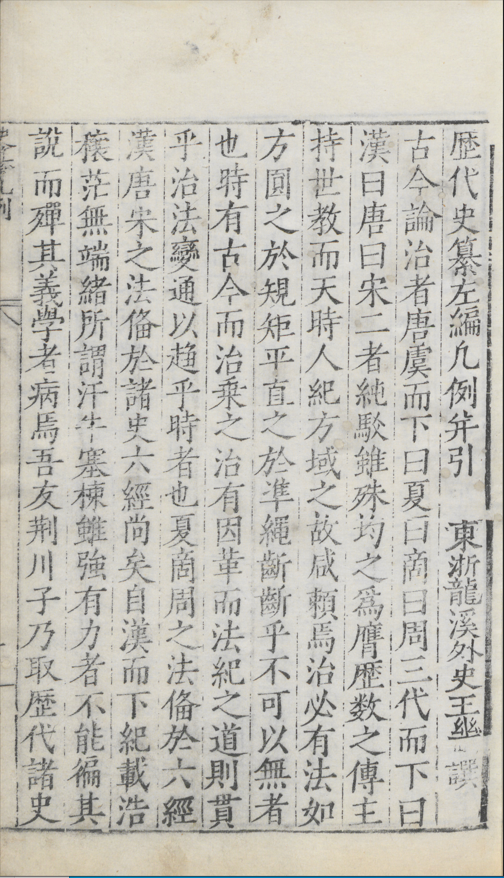 歴代史纂左編凡例并引　東浙龍溪外史王畿譔
古今論治者唐虞而下曰夏曰商曰周三代而下曰
漢曰唐曰宋二者純駁雖殊均之爲膺歴数之傳主
持世教而天時人紀方域之故咸頼焉治必有法如
方圓之於䂓矩平直之於準繩斷斷乎不可以無者
也時有古今而治乗之治有因革而法紀之道則貫
乎治法變通以趋乎時者也夏商周之法偹於六經
漢唐宋之法偹於諸史六經尚矣自漢而下紀載浩
穰茫無端緒所謂汗牛塞棟雖強有力者不能徧其
說而殫其義學者病焉吾友荆川子乃取歴代諸史